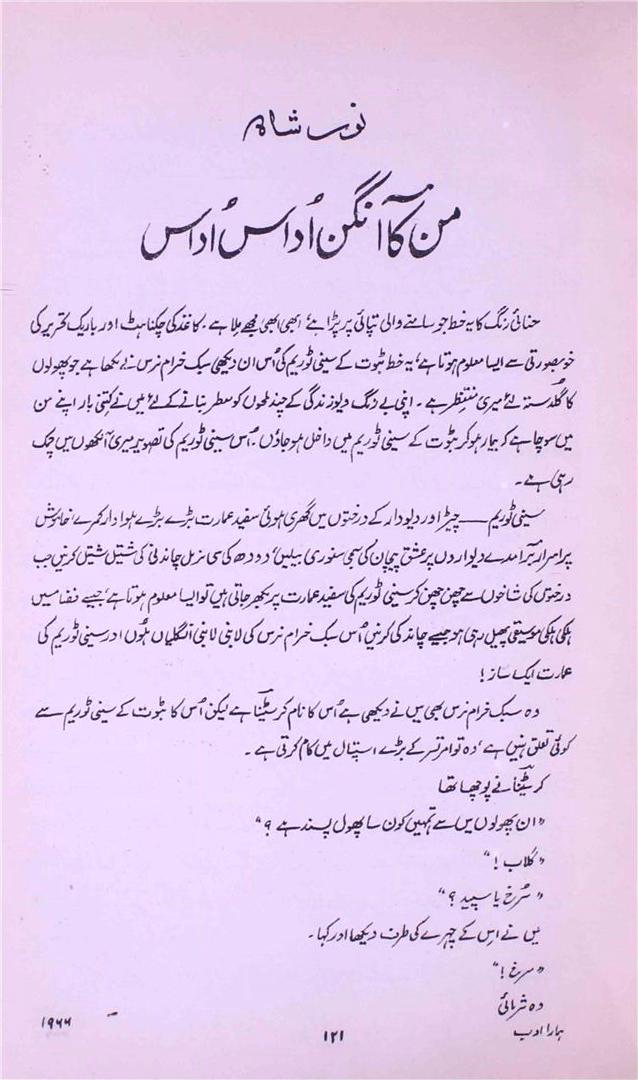 نور شاہ
من کا آنگن اُداس اُداس
حنائی رنگ کا یہ خط جو سامنے والی تپائی پر پڑا ہے، ابھی ابھی مجھے ملا ہے۔ کاغذ کی چکناہٹ اور باریک تحریر کی
خوبصورتی سے ایسا معلوم ہوتا ہے، یہ خط بٹوت کے سینی ٹوریم کی اُس ان دیکھی سبک خرام نرس نے لکھا ہے جو پھولوں
کا گلدستہ لئے میری منتظر ہے۔ اپنی بے رنگ و بو زندگی کے چند لمحوں کو معطر بنانے کے لئے میں نے کتنی بار اپنے من
میں سوچا ہے کہ بیمار ہو کر بٹوت کے سینی ٹوریم میں داخل ہو جاؤں۔ اُس سینی ٹوریم کی تصویر میری آنکھوں میں چمک
رہی ہے۔
سینی ٹوریم — چیڑ اور دیودار کے درختوں میں گھری ہوئی سفید عمارت بڑے بڑے ہوادار کمرے، خاموش
پراسرار برآمدے دیواروں پر عشق پیچان کی سجی سنوری بیلیں، دودھ کی سی نرمل چاندنی کی شیتل شیتل کرنیں جب
درختوں کی شاخوں سے چھن چھن کر سینی ٹوریم کی سفید عمارت پر بکھر جاتی ہیں تو ایسا معلوم ہوتا ہے، جیسے فضا میں
ہلکی ہلکی موسیقی پھیل رہی ہو جیسے چاند کی کرنیں اُس سبک خرام نرس کی لانبی لانبی انگلیاں ہوں اور سینی ٹوریم کی
عمارت ایک ساز!
وہ سبک خرام نرس بھی میں نے دیکھی ہے اُس کا نام کرسٹینا ہے لیکن اُس کا بٹوت کے سینی ٹوریم سے
کوئی تعلق نہیں ہے، وہ تو امرتسر کے بڑے اسپتال میں کام کرتی ہے۔
کرسٹینا نے پوچھا تھا
”ان پھولوں میں سے تمہیں کون سا پھول پسند ہے؟“
”گلاب!“
”سُرخ یا سپید؟“
میں نے اس کے چہرے کی طرف دیکھا اور کہا۔
”سرخ!“
وہ شرمائی
ہمارا ادب
۱۲۱
۱۹۶۶